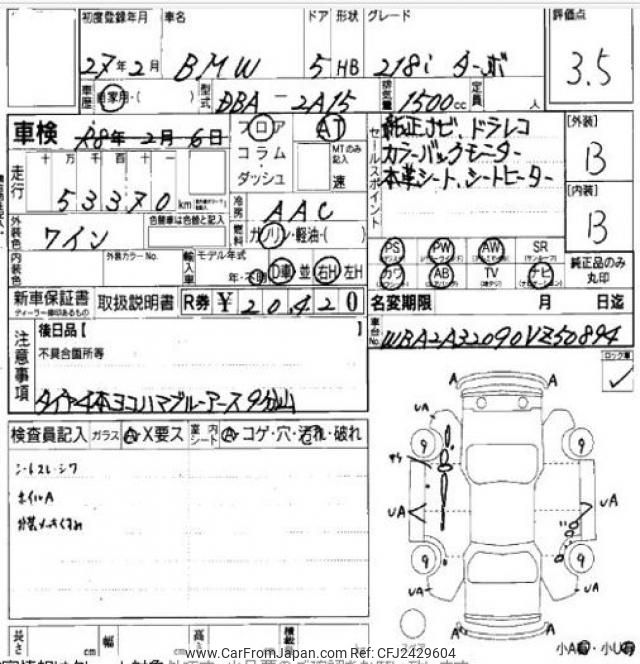 初度登録年月 車名 ドア 形状 グレード 評価点
27年2月 BMW 5 HB 218i ターボ 3.5
車歴 自家用・( ) 型式 DBA-2A15 排気量 1500cc 定員 人
車検 R8年2月6日 フロア AT セールスポイント 純正ナビ、ドラレコ [外装]
走行 十 万 千 百 十 一 コラム MTのみ記入 カラーバックモニター B
53370 km ダッシュ 速 本革シート、シートヒーター
冷房 AAC [内装]
外装色 ワイン 色替車は色替と記入 燃料 ガソリン・軽油・( ) B
内装色 外装カラーNo. 輸入車 モデル年式 年・不明 D車 並 右H 左H
PS PW AW SR 純正品のみ丸印
カワ AB TV ナビ
新車保証書 取扱説明書 R券 ¥ 20,420 名変期限 月 日迄
ディーラー捺印あるもの
注意事項 後日品【 】 車台No. WBA2A32090VZ50894
不具合箇所等 ロック車
タイヤ4本ヨコハマブルーアース9分山
検査員記入 ガラス A・X要ス 室内シート A・コゲ・穴・汚れ・破れ
シートスレ・シワ
ホイルA
外装メッキくすみ
A A
UA A
9 9
UA UA
9 9
UA UA
A A
長さ cm 幅 cm 高さ cm 積載
www.CarFromJapan.com Ref: CFJ2429604